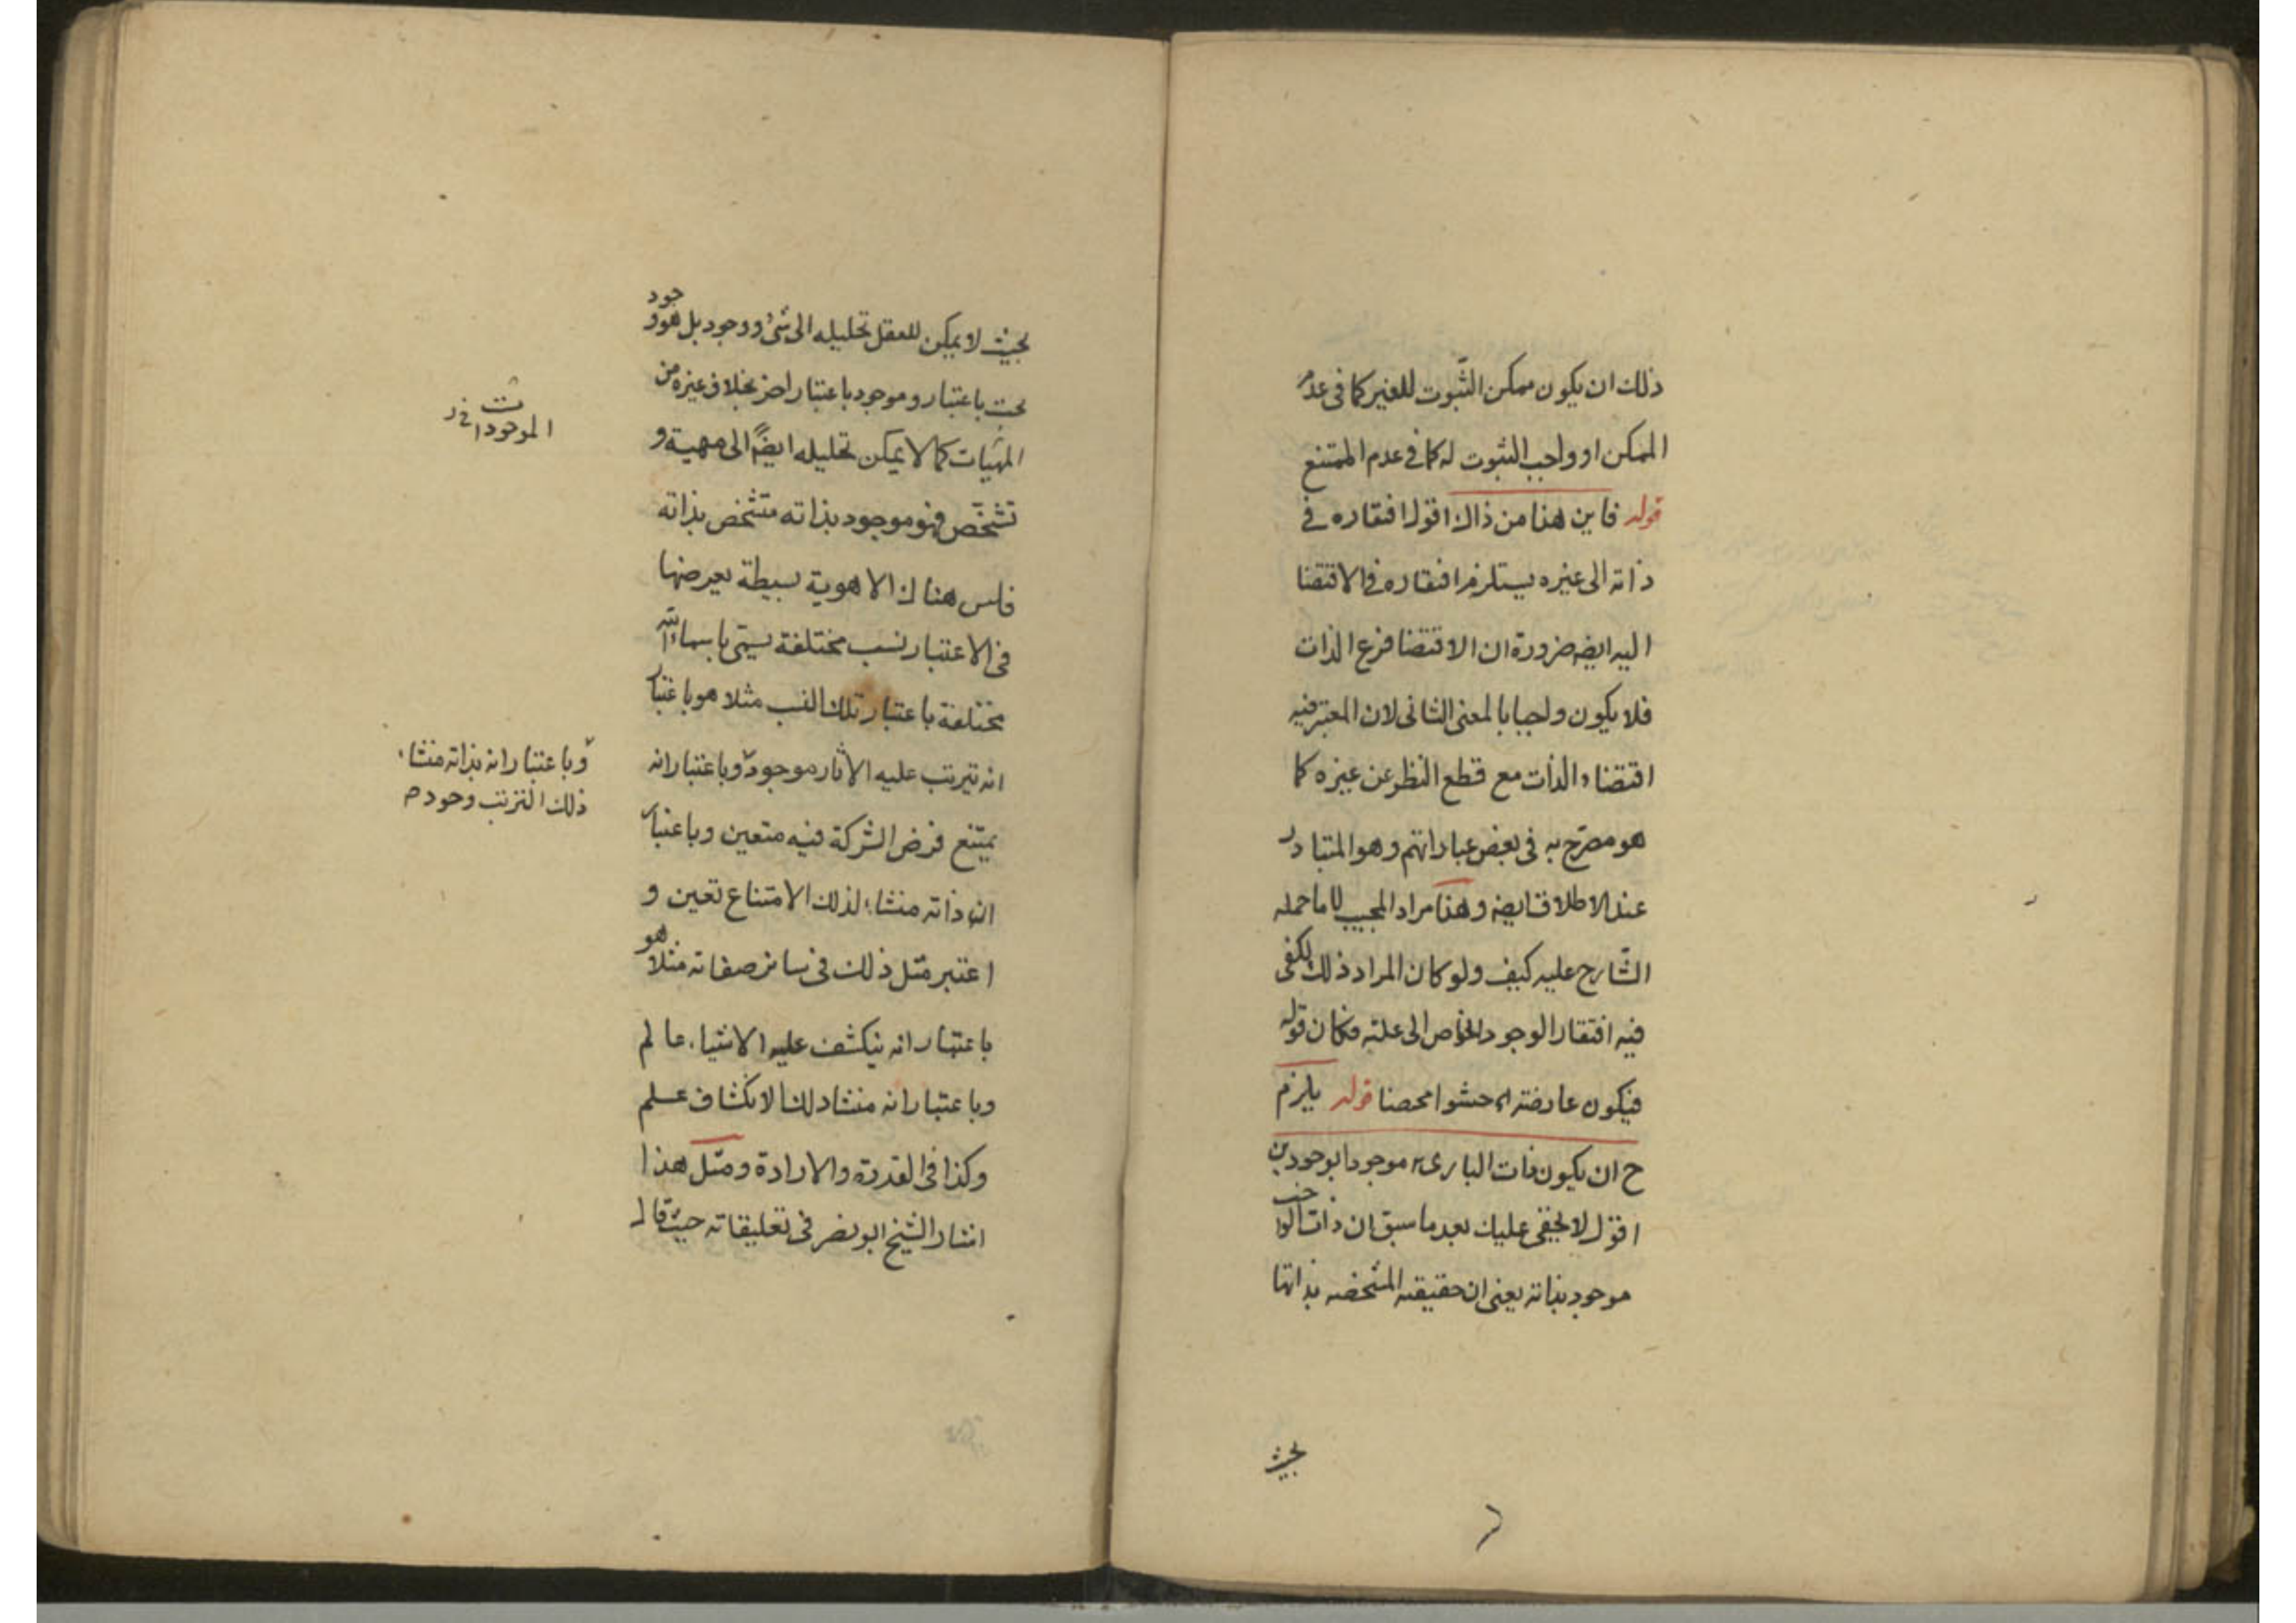 ذلك ان يكون ممكن الثّبوت للغير كما فى عدم
الممكن او واجب الثبوت له كما فى عدم الممتنع
قوله فاين هذا من ذاك اقول افتقاره فى
ذاته الى غيره يستلزم افتقاره فى الاقتضا
اليه ايضه ضرورة ان الاقتضا فرع الذات
فلا يكون واجبا بالمعنى الثانى لان المعتبر فيه
اقتضاء الذات مع قطع النظر عن غيره كما
هو مصرّح به فى بعض عباراتهم وهو المتبادر
عند الاطلاق ايضه وهذا مراد المجيب لا ما حمله
الشّارح عليه كيف ولو كان المراد ذلك لكفى
فيه افتقار الوجود الخاص الى علته فكان قوله
فيكون عارضته حشوا محضا قوله يلزم
ح ان يكون ذات البارى موجودا بوجودين
اقول لا يخفى عليك بعد ما سبق ان ذات الواجب
موجود بذاته يعنى ان حقيقته المشخصه بذاتها
بحيث
بحيث لا يمكن للعقل تحليله الى شئ ووجود بل هو وجود
بحت باعتبار وموجود باعتبار اخر بخلاف غيره من
المهيات كما لا يمكن تحليله ايضًا الى مهية و
تشخّص فهو موجود بذاته متشخص بذاته
فليس هناك الا هوية بسيطة يعرضها
فى الاعتبار نسب مختلفة يسمّى باسماء
مختلفة باعتبار تلك النسب مثلا هو باعتبار
انه تيرتب عليه الاثار موجود وباعتبار انه
يمتنع فرض الشركة فيه متعين وباعتبار
ان ذاته منشاء لذلك الامتناع تعين و
اعتبر مثل ذلك فى سائر صفاته مثلا هو
باعتبار انه ينكشف عليه الاشياء عالم
وباعتبار انه منشا ذلك الانكشاف علم
وكذا فى القدرة والارادة ومثل هذا
اشار الشيخ ابو نصر فى تعليقاته حيث قال
الموجودات
وباعتبار انه بذاته منشاء
ذلك الترتب وجود